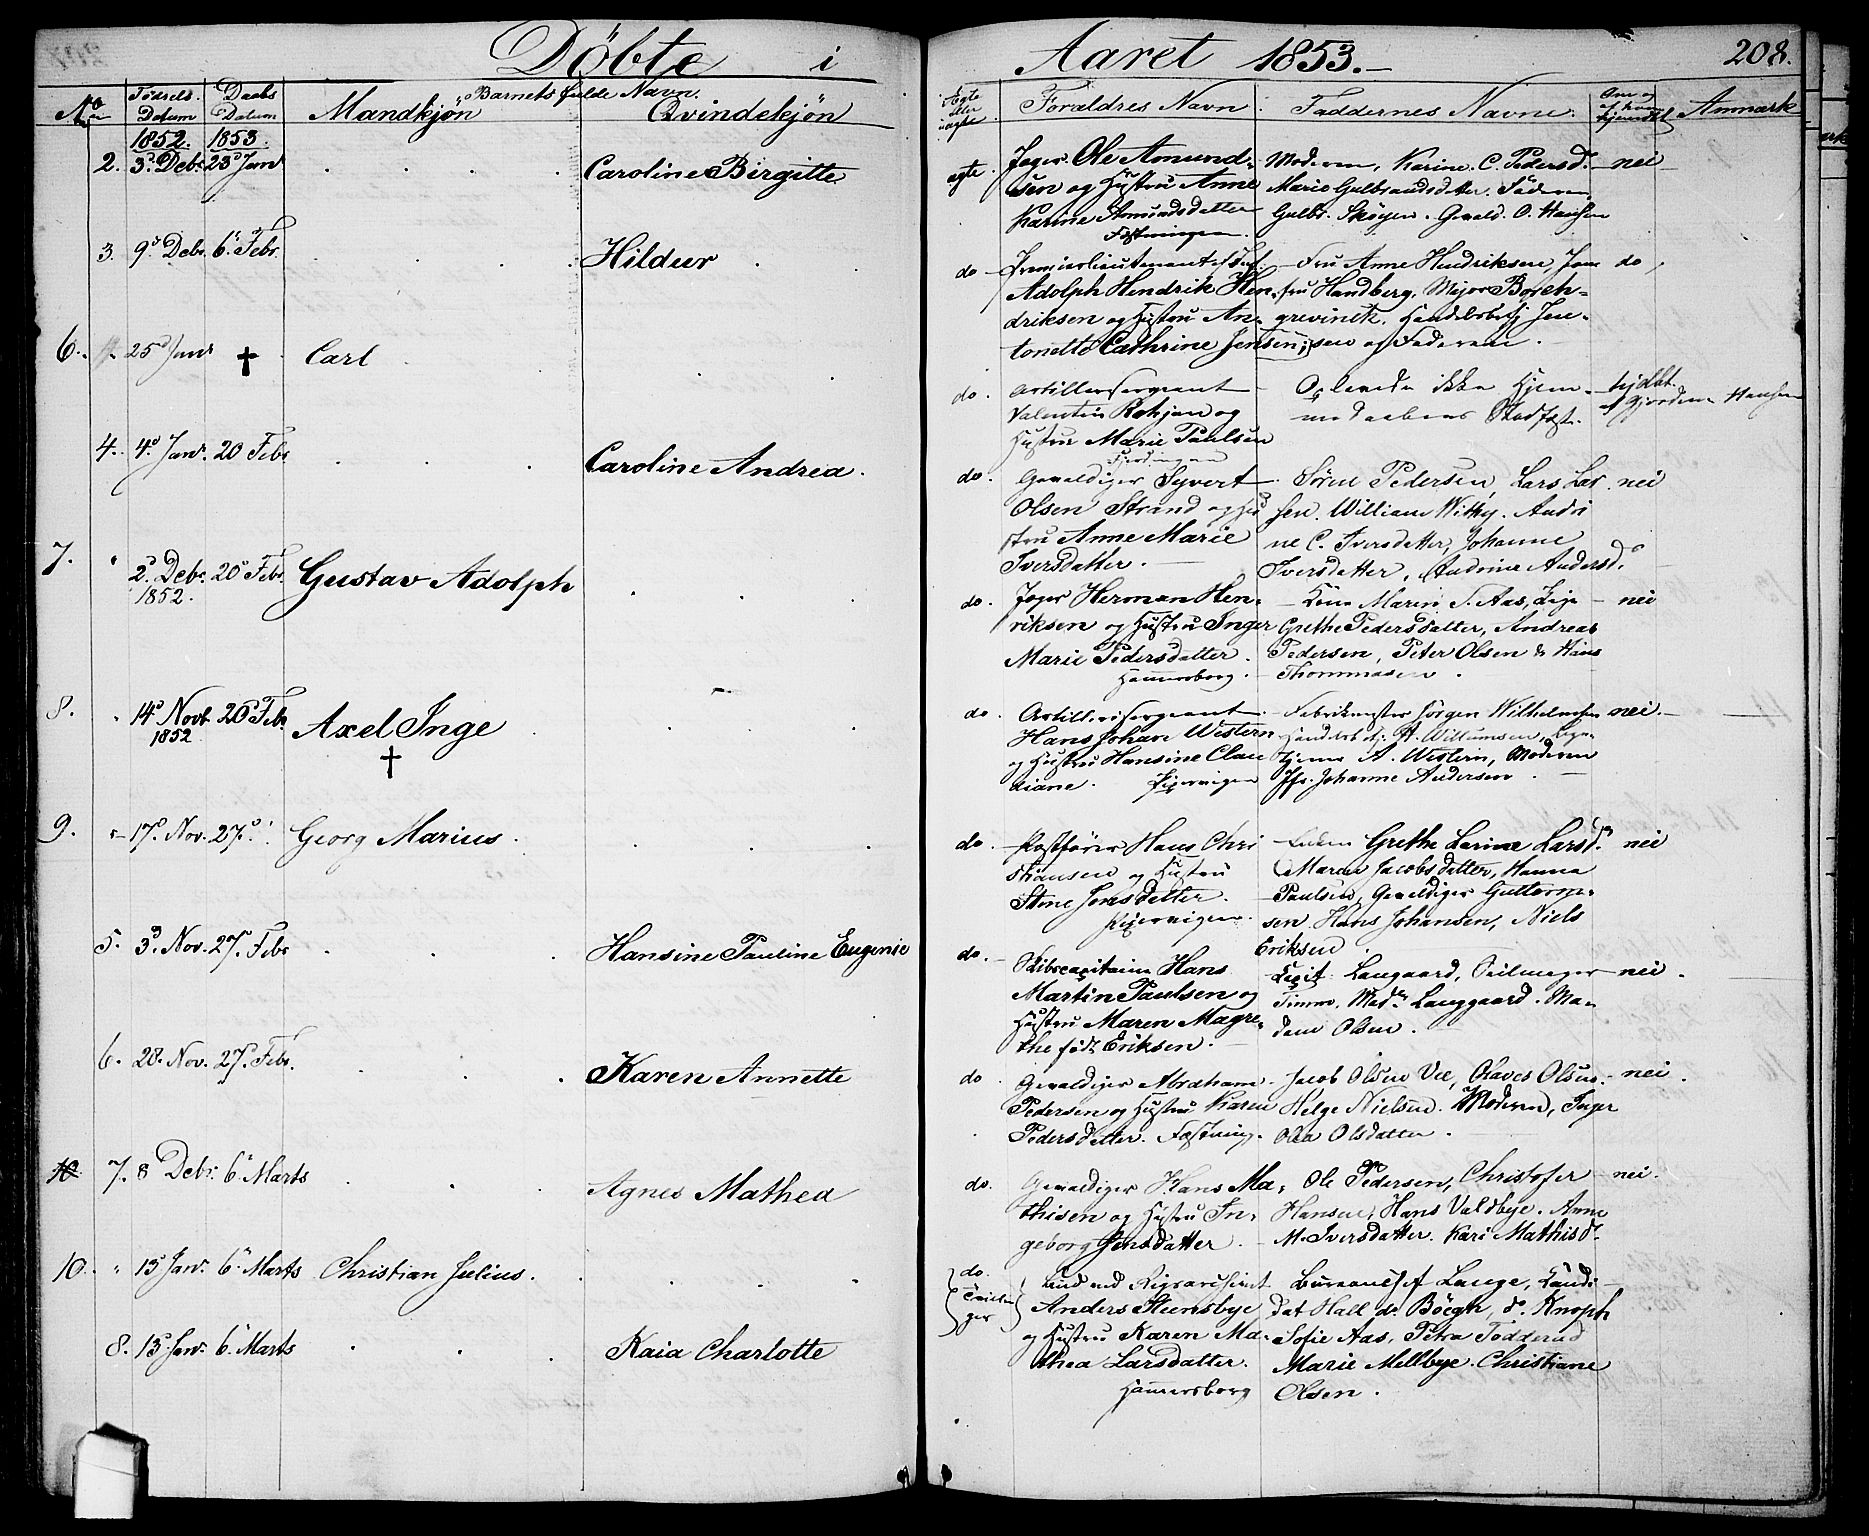 Døbte i Aaret 1853. 208.
No Fødsels Datum Daabs Datum Barnets fulde Navn. Mandkjøn Qvindekjøn
Ægte eller uægte Foraldres Navn Faddernes Navne. Om og af hvem hjemmedøbt Anmærk
1852. 1853.
2. 3d Debr. 23d Janr Caroline Birgitte
ægte. Jæger Ole Amund-
sen og Hustru Anne
Karine Amundsdatter
Fæstningen
Moderen, Karine C. Pedersd.
Marie Gulbrandsdatter. Faderen
Gulbr. Skøyen. Gevald. O. Hansen
nei
3. 9d Debr. 6d Febr. Hildur
do Premierlieutenant
Adolph Hendrik Hen-
driksen og Hustru An-
tonette Cathrine Jensen,
Fru Anne Hendriksen, Jom
fru Handberg, Major Borch-
grevinck. Handelsbetj Jen-
sen og Faderen.
do
6. 25d Janr † Carl
do. Artillerisergeant
Valentin Rohjan og
Hustru Marie Paulsen
Fjerdingen
Oplevede ikke Hjem-
medaabens Stadfæst.
hjdbt. af Gjordem Hansen
4. 4d Janr. 20 Febr Caroline Andrea.
do. Gevaldiger Syvert
Olsen Strand og Hu
stru Anne Marie
Iversdatter.
Sørine Pedersen, Lars Lar
sen. William Withy. Andri
ne C. Iversdatter, Johanne
Iversdatter, Andrine Andersd.
nei
7. 2d Debr. 20d Febr. Gustav Adolph
1852.
do. Jæger Herman Hen-
riksen og Hustru Inger
Marie Pedersdatter.
Hammersborg.
Kone Marin S. Aas, Pige
Grethe Pedersdatter, Andreas
Pedersen, Peter Olsen & Hans
Thommasen.
nei
8. 14d Novbr 20d Febr Axel Inge †
1852
do. Artillerisergeant
Hans Johan Western
og Hustru Hansine Clau
diane. Pipervigen
Fabrikmester Jørgen Wilhelmsen
Handelsbetj. H. Willumsen,
A. Western, Moderen
Jfr. Johanne Andersen.
nei.
9. 17d Nov. 27d Georg Marius.
do. Postfører Hans Chri
stiansen og Hustru
Stine Jensdatter.
Pipervigen.
Grethe Larine Larsd.
Maren Jacobsdatter, Hanna
Paulsen, Gevaldiger Guttorm-
sen Hans Johansen, Niels
Eriksen.
nei
5. 3d Nov. 27. Febr Hansine Pauline Eugenie
do. Skibscapitain Hans
Martin Paulsen og
Hustru Maren Magre-
the født Eriksen.
Capit. Langaard, Seilmager
Timm, Madm Langgaard. Ma-
dam Olsen.
nei.
6. 28. Nov. 27. Febr. Karen Annette
do Gevaldiger Abraham
Pedersen og Hustru Karen
Pedersdatter. Fæstning.
Jacob Olsen Vee, Olaves Olsen.
Helge Nielsen. Moderen, Inger
Olea Olsdatter.
nei.
10 7. 8 Debr. 6d Marts Agnes Mathea
do. Gevaldiger Hans Ma-
thisen og Hustru In-
geborg Jensdatter.
Ole Pedersen, Christofer
Hansen, Hans Valdbye. Anne
M. Iversdatter. Kari Mathisd.
nei.
10. 13 Janr. 6d Marts Christian Julius.
8. 13 Janr. 6d Marts Kaia Charlotte
do. Tvillinger
Bud ved Rigsarchivet
Anders Steensbye
og Hustru Karen Ma-
thea Larsdatter.
Hammersborg
Bureauchef Lange, Kandi
dat Hall do Böegh, do Knoph
Sofie Aas, Petra Tødderud
Marie Mellbye. Christiane
Olsen.